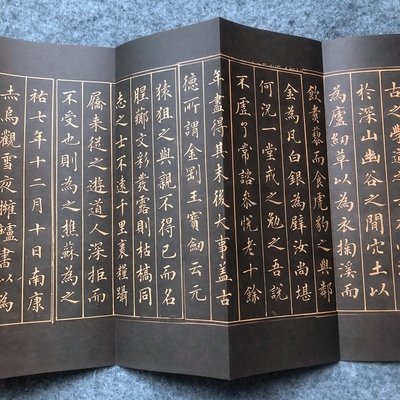 古之學道之士
於深山幽谷之間穴土以
為廬紉草以為衣掬溪而
飲煑藜而食虎豹之與鄰
金為瓦白銀為壁汝尚堪
何況一堂戒之勉之吾說
不虛了常諮參悅老十餘
年盡得其末後大事蓋古
德所謂金剛王寶劒云元
猿狙之與親不得已而名
腥薌文彩發露則枯槁同
志之士不遠千里裹糧躡
屩来從之遊道人深拒而
不受也則為之樵蘇為之
祐七年十二月十日南康
赤烏觀雪夜擁爐書以為